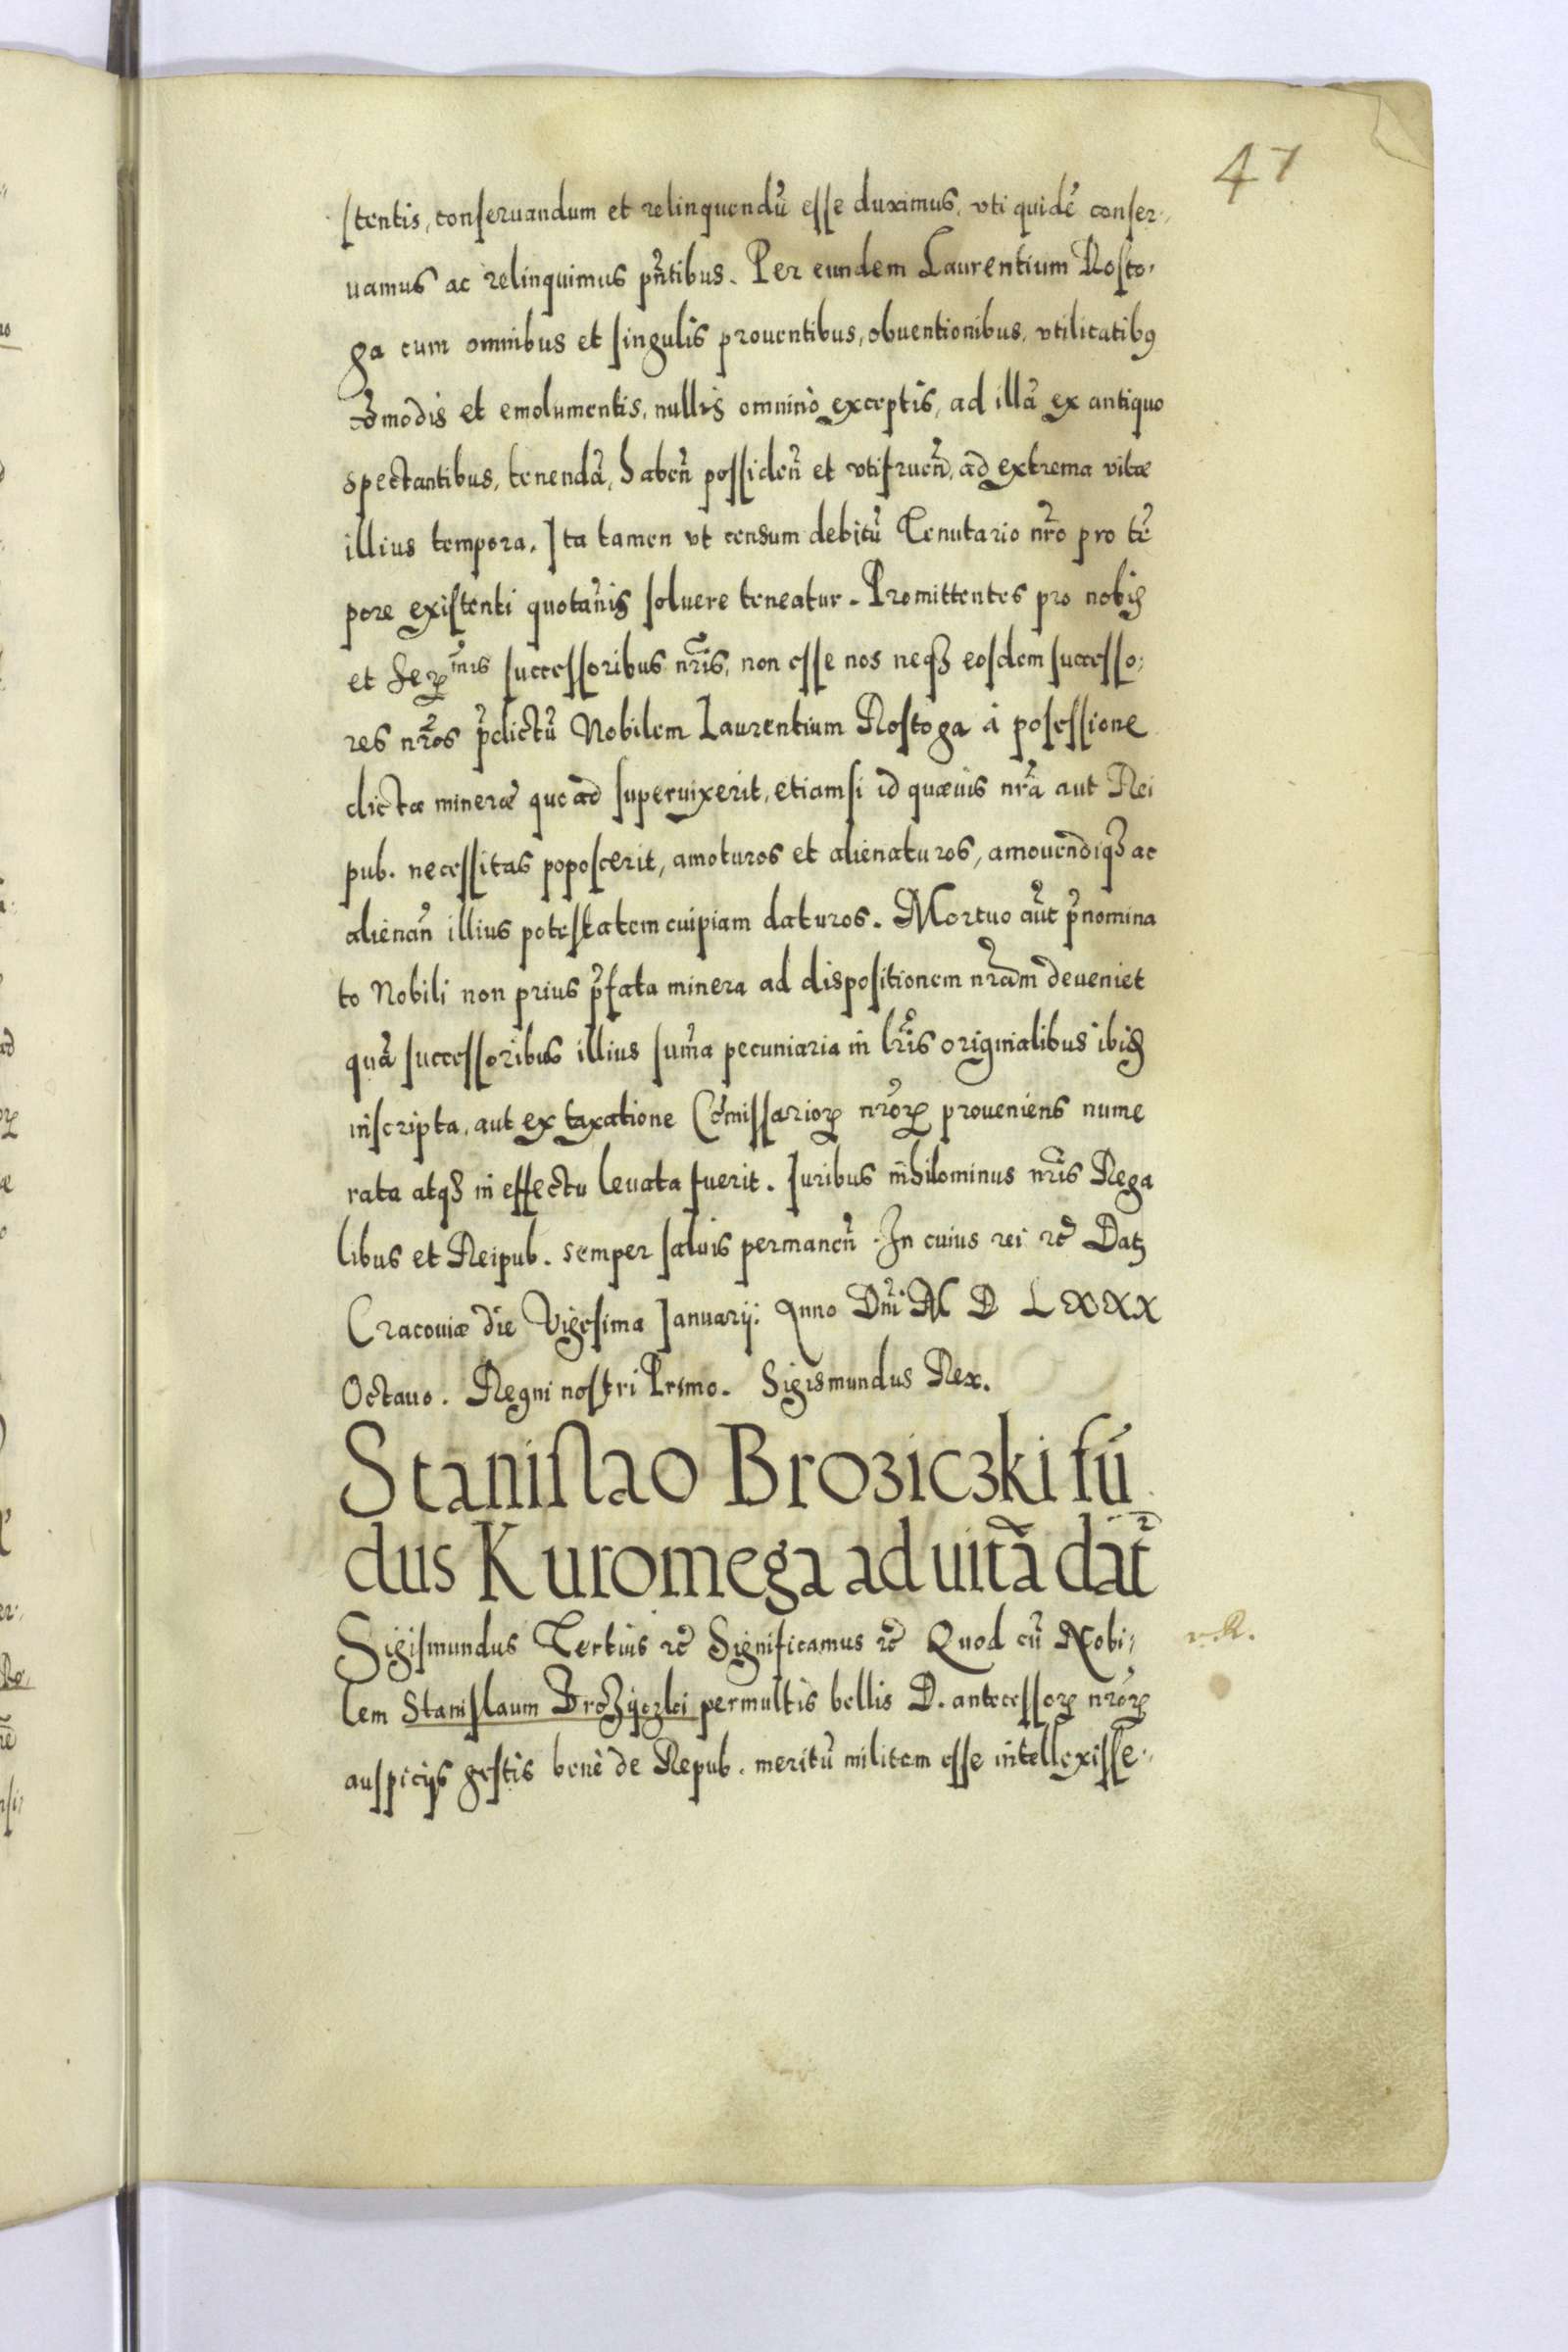 47
stentis, conseruandum et relinquendũ esse duximus, vti quidẽ conser,,
uamus ac relinquimus pñtibus. Per eundem Laurentium Rosto,
ga cum omnibus et singulis prouentibus, obuentionibus, vtilitatibꝯ
cõmodis et emolumentis, nullis omninò exceptis, ad illã ex antiquo
spectantibus, tenendã, habeñ possideñ et vtifrueñ, ad extrema vitæ
illius tempora. Ita tamen vt censum debitũ Tenutario nr̃o pro tẽ
pore existenti quotañis soluere teneatur. Promittentes pro nobis
et Serꝫᵐⁱˢ successoribus nr̃is, non esse nos neqꝫ eosdem successo,
res nr̃os p̃dictũ Nobilem Laurentium Rostoga á posessione
dictæ mineræ quoad superuixerit, etiamsi id quæuis nr̃a aut Rei
pub. necessitas poposcerit, amoturos et alienaturos, amouendiqꝫ ac
alienañ illius potestatem cuipiam daturos. Mortuo aũt p̃nomina
to Nobili non prius p̃fata minera ad dispositionem nr̃am deueniet
quã successoribus illius sum̃a pecuniaria in lr̃is originalibus ibiꝫ
inscripta, aut ex taxatione Cõmissarioꝝ nr̃oꝝ proueniens nume
rata atqꝫ in effectu leuata fuerit. Iuribus nihilominus nr̃is Rega
libus et Reipub. semper saluis permaneñ. In cuius rei ꝛc̃ Datꝫ
Cracouiæ die Vigesima Ianuarij: Anno Dñi M D LXXX
Octauo. Regni nostri Primo. Sigismundus Rex.
Stanislao Broziczki fũ
dus Kuromega ad uitã dat̃
Sigismundus Tertius ꝛc̃ Significamus ꝛc̃ Quod cũ Nobi,
lem Stanislaum Brozyczki permultis bellis D. antecessoꝝ nr̃oꝝ
auspicijs gestis benè de Repub. meritũ militem esse intellexisse,,